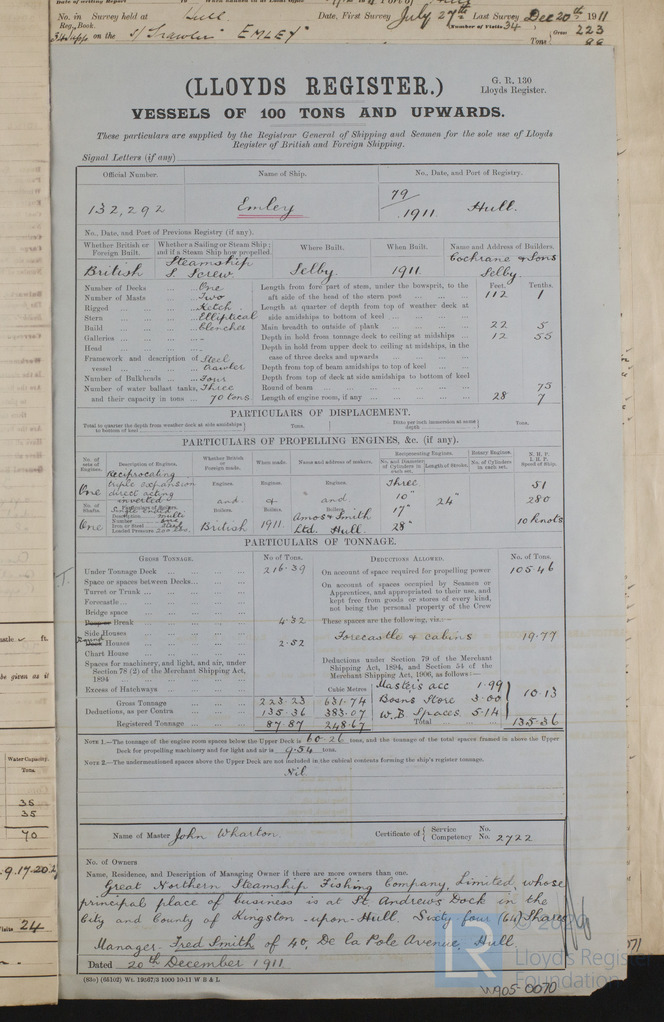 No. in Survey held at Hull Date, First Survey July 27th Last Survey Dec 20th 1911
Reg. Book. (Number of Visits 34
on the S/ Trawler "EMLEY" Tons Gross 223
(LLOYDS REGISTER.)
G. R. 130
Lloyds Register.
VESSELS OF 100 TONS AND UPWARDS.
These particulars are supplied by the Registrar General of Shipping and Seamen for the sole use of Lloyds
Register of British and Foreign Shipping.
Signal Letters (if any)
Official Number. Name of Ship. No., Date, and Port of Registry.
132,292 Emley 79/1911 Hull.
No., Date, and Port of Previous Registry (if any).
Whether British or Foreign built. Whether a Sailing or Steam Ship; and if a Steam Ship how propelled. Where Built. When Built. Name and Address of Builders.
British Steamship S. Screw. Selby. 1911. Cochrane & Sons Selby.
Number of Decks One Length from fore part of stem, under the bowsprit, to the Feet. Tenths.
Number of Masts Two aft side of head of the stern post 112 1
Rigged Ketch Length at quarter of depth from top of weather deck at
Stern Elliptical side amidships to bottom of keel
Build Clencher Main breadth to outside of plank 22 5
Galleries - Depth in hold from tonnage deck to ceiling at midships 12 55
Head - Depth in hold from upper deck to ceiling at midships, in the
Framework and description of Steel case of three decks and upwards
vessel trawler Depth from top of beam amidships to top of keel
Number of Bulkheads Four Depth from top of deck at side amidships to bottom of keel
Number of water ballast tanks, Three Round of beam 75
and their capacity in tons 70 tons. Length of engine room, if any 28 7
PARTICULARS OF DISPLACEMENT.
Total to quarter the depth from weather deck at side amidships to bottom of keel Tons. Ditto per inch immersion at same depth Tons.
PARTICULARS OF PROPELLING ENGINES, &c. (if any).
No. of sets of Engines. Description of Engines. Whether British or Foreign made. When made. Name and address of makers. Reciprocating Engines. Rotary Engines. N. H. P.
No. and Diameter of Cylinders in each set. Length of Stroke. No. of Cylinders in each set. I. H. P. Speed of Ship.
One Reciprocating triple expansion direct acting inverted Engines. Engines. Engines. Three 51
and & and 10" 24" 280
No. of Shafts. Particulars of Boilers. Boilers. Boilers. Boilers. 17"
One Description multi Number one Iron or Steel steel Loaded Pressure 200 lbs. British 1911. Amos & Smith Ltd. Hull. 28" 10 knots
PARTICULARS OF TONNAGE.
Gross Tonnage. No of Tons. Deductions Allowed. No. of Tons.
Under Tonnage Deck 216.39 On account of space required for propelling power 105.46
Space or spaces between Decks On account of spaces occupied by Seamen or
Turret or Trunk Apprentices, and appropriated to their use, and
Forecastle kept free from goods or stores of every kind,
Bridge space not being the personal property of the Crew
Poop or Break 4.32 These spaces are the following, viz.:—
Side Houses Forecastle & cabins 19.77
Deck Houses Round 2.52
Chart House
Spaces for machinery, and light, and air, under Deductions under Section 79 of the Merchant
Section 78 (2) of the Merchant Shipping Act, Shipping Act, 1894, and Section 54 of the
1894 Merchant Shipping Act, 1906, as follows:—
Excess of Hatchways Cubic Metres Master's acc 1.99
Gross Tonnage 223.23 631.74 Bosns Store 3.00 10.13
Deductions, as per Contra 135.36 383.07 W.B Spaces 5.14
Registered Tonnage 87.87 248.67 Total 135.36
Note 1.—The tonnage of the engine room spaces below the Upper Deck is 60.26 tons, and the tonnage of the total spaces framed in above the Upper
Deck for propelling machinery and for light and air is 9.54 tons.
Note 2.—The undermentioned spaces above the Upper Deck are not included in the cubical contents forming the ship's register tonnage.
Nil
Name of Master John Wharton. Certificate of { Service No.
Competency No. 2722
No. of Owners
Name, Residence, and Description of Managing Owner if there are more owners than one.
Great Northern Steamship Fishing Company, Limited, whose
principal place of business is at St. Andrews Dock in the
City and County of Kingston-upon-Hull. Sixty four (64) Shares
Manager - Fred Smith of 40, De la Pole Avenue, Hull
Dated 20th December 1911
(83o) (66102) Wt. 19567/3 1000 10-11 W B & L
W905-0070
LR
© 2020
Lloyds Register
Foundation
ft.
be given as it
Water Capacity.
Tons
35
35
70
24